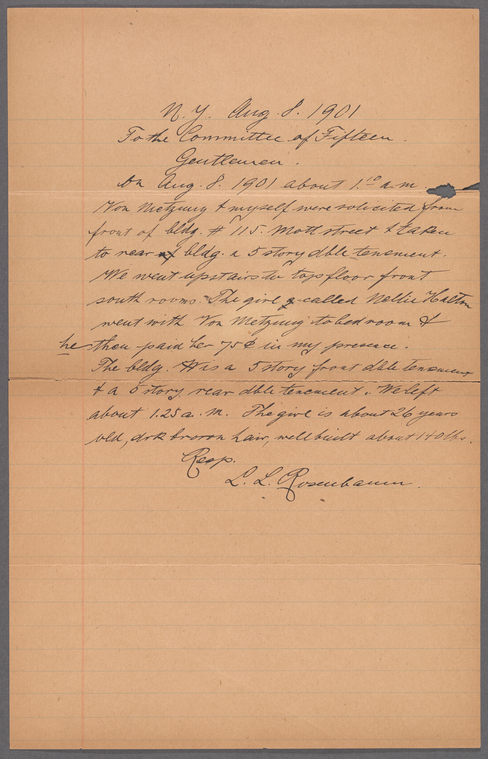 N. Y. Aug. 8. 1901
To the Committee of Fifteen.
Gentlemen.
On Aug. 8. 1901 about 1.10 a.m
Von Metzung & myself were solicited from
front of bldg. # 115. Mott street & taken
to rear of bldg. a 5 story dble tenement.
We went upstairs to top floor front
south rooms. The girl called Nellie Halton
went with Von Metzung to bedroom &
he then paid her 75¢ in my presence.
The bldg. Has a 5 story front dble tenement
& a 5 story rear dble tenement. We left
about 1.25 a. m. The girl is about 26 years
old, drk brown hair, well built about 140 lbs.
Resp.
L. L. Rosenbaum.